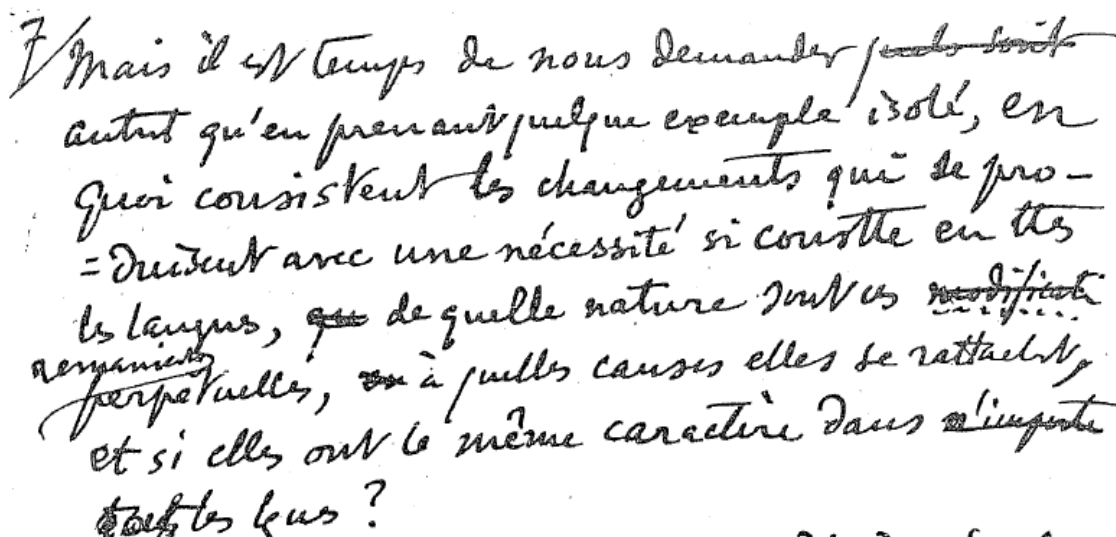 7/ Mais il est temps de nous demander quels sont
autret qu'en prenant quelque exemple isolé, en
quoi consistent les changements qui se pro-
=duisent avec une nécessité si constte en ttes
les langues, que de quelle nature sont ces modificati
remaniemts
perpétuelles, à quelles causes elles se rattacht,
et si elles ont le même caractère dans n'importe
toutes les lgues ?